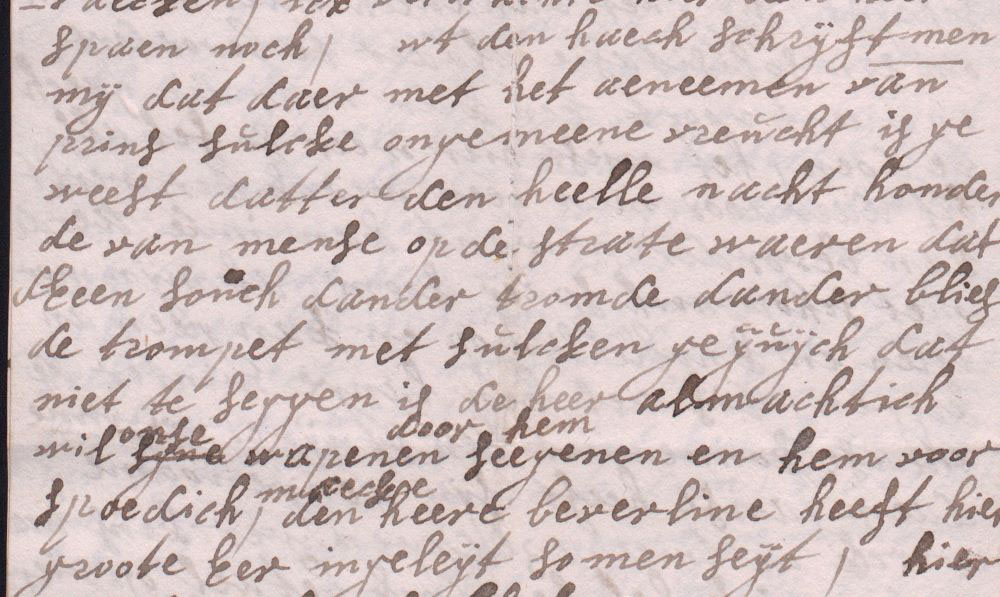 spaen noch, wt den haech schryft men
mÿ dat daer met het aeneemen van
prins sulcke ongemeene vreucht is ge
weest datter den heelle nacht honder
de van mense op de strate waeren dat
deen sonck dander tromde dander blies
de trompet met sulcken gejuych dat
niet te seggen is de heer almachtich
onse door hem
wil syne wapenen seegenen en hem voor
spoedich maecke, den heere beverline heeft hier
groote eer ingeleÿt so men seÿt, hier